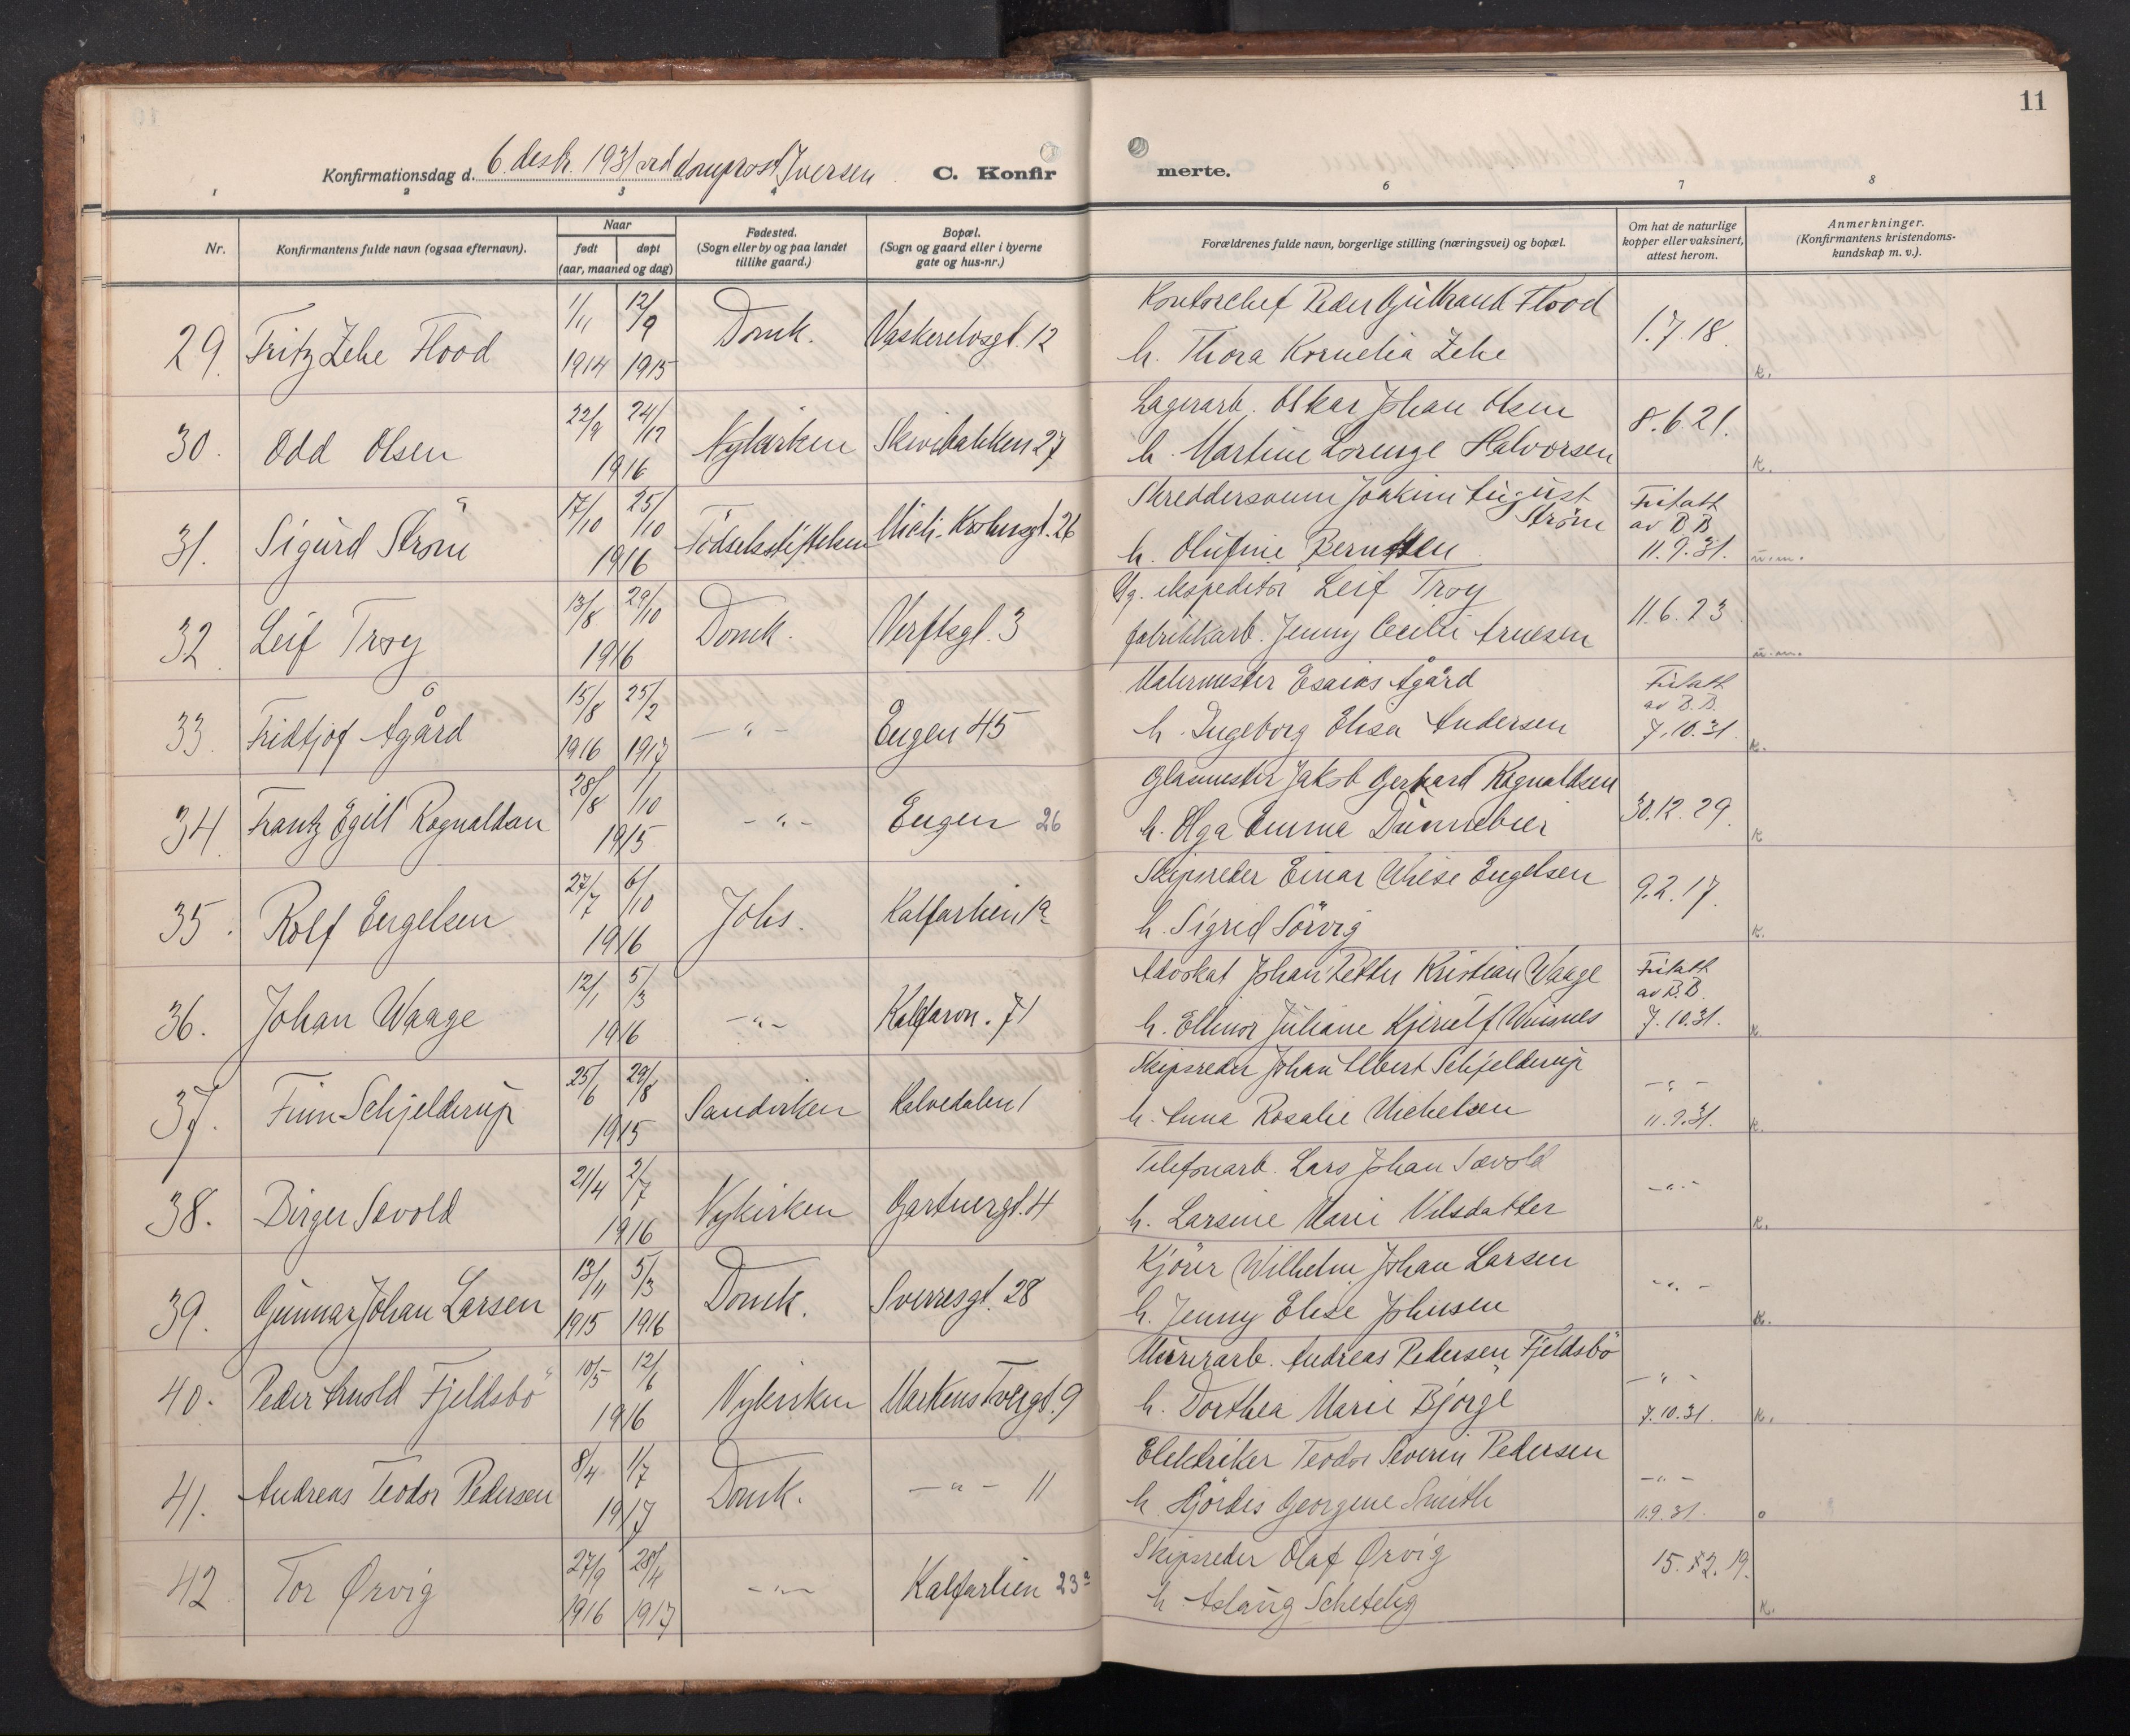 11
Konfirmationsdag d. 6. desbr. 1931 ved domprost Iversen C. Konfirmerte.
1 2 3 4 6 7 8
Nr. Konfirmantens fulde navn (ogsaa efternavn). Naar født døpt (aar, maaned og dag) Fødested. (Sogn eller by og paa landet tillike gaard.) Bopæl. (Sogn og gaard eller i byerne gate og hus-nr.) Forældrenes fulde navn, borgerlige stilling (næringsvei) og bopæl. Om hat de naturlige kopper eller vaksinert, attest herom. Anmerkninger. (Konfirmantens kristendomskundskap m. v.).
29. Fritz Zehe Flood 1/11 1914 12/9 1915 Domk. Vaskerelvsgt. 12 Kontorchef Peder Gulbrand Flood
h. Thora Kornelia Zehe 1.7.18. k.
30. Odd Olsen 22/9 24/12 1916 Nykirken Skivebakken 27 Lagerarb. Oskar Johan Olsen
h. Martine Lorenze Halvorsen 8.6.21. k.
31. Sigurd Strøm 17/10 25/10 1916 Födselsstiftelsen Mich. Krohnsgt. 26 Skreddersvenn Joakim August Strøm
h. Olufine Berntsen Fritatt av B.B. 11.9.31. u.m.
32. Leif Troy 13/8 29/10 1916 Domk. Verftsgt. 3 Ug. ekspeditør Leif Troy
fabrikkarb. Jenny Cecilie Arnesen 11.6.23 u.m.
33. Fridtjof Ågård 15/8 1916 25/2 1917 — " — Eugen 45 Malermester Esaias Ågård
h. Ingeborg Elisa Andersen Fritatt av B.B. 7.10.31. k.
34. Frantz Egill Rognaldsen 28/8 1/10 1915 — " — Eugen 26 Glasmester Jakob Gerhard Rognaldsen
h. Olga Emma Dünnebier 30.12.29. k
35. Rolf Engelsen 27/7 6/10 1916 Johs. Kalfarlien 1a Skipsreder Einar Wiese Engelsen
h. Sigrid Sörvig 9.2.17. k.
36. Johan Waage 12/1 5/3 1916 — " — Kalfarvn. 71 Advokat Johan Petter Kristian Waage
h. Ellinor Juliane Kjerulf Wiisnes Fritatt av B.B. 7.10.31. k.
37. Finn Schjelderup 25/6 29/8 1915 Sandviken Kalvedalen 1 Skipsreder Johan Elbert Schjelderup
h. Anna Rosalie Michelsen — " — 11.9.31. k.
38. Birger Sævold 21/4 2/7 1916 Nykirken Gartnergt. 4 Telefonarb. Lars Johan Sævold
h. Larsine Marie Nilsdatter — " — k.
39. Gunnar Johan Larsen 13/11 1915 5/3 1916 Domk. Sverresgt. 28 Kjörer Wilhelm Johan Larsen
h. Jenny Elise Johnsen — " — k.
40. Peder Arnold Fjeldsbö 10/5 12/6 1916 Nykirken Markens Tvergt. 9 Murerarb. Andreas Pedersen Fjeldsbö
h. Dorthea Marie Bjørge — " — 7.10.31. k.
41. Andreas Teodor Pedersen 8/4 1/7 1917 Domk. — " — 11 Elektriker Teodor Severin Pedersen
h. Hjördis Georgene Smith — " — 11.9.31. o
42 Tor Ørvig 27/9 1916 28/4 1917 — " — Kalfarlien 23a Skipsreder Olaf Ørvig
h. Aslaug Schetelig 15.12.19. k.